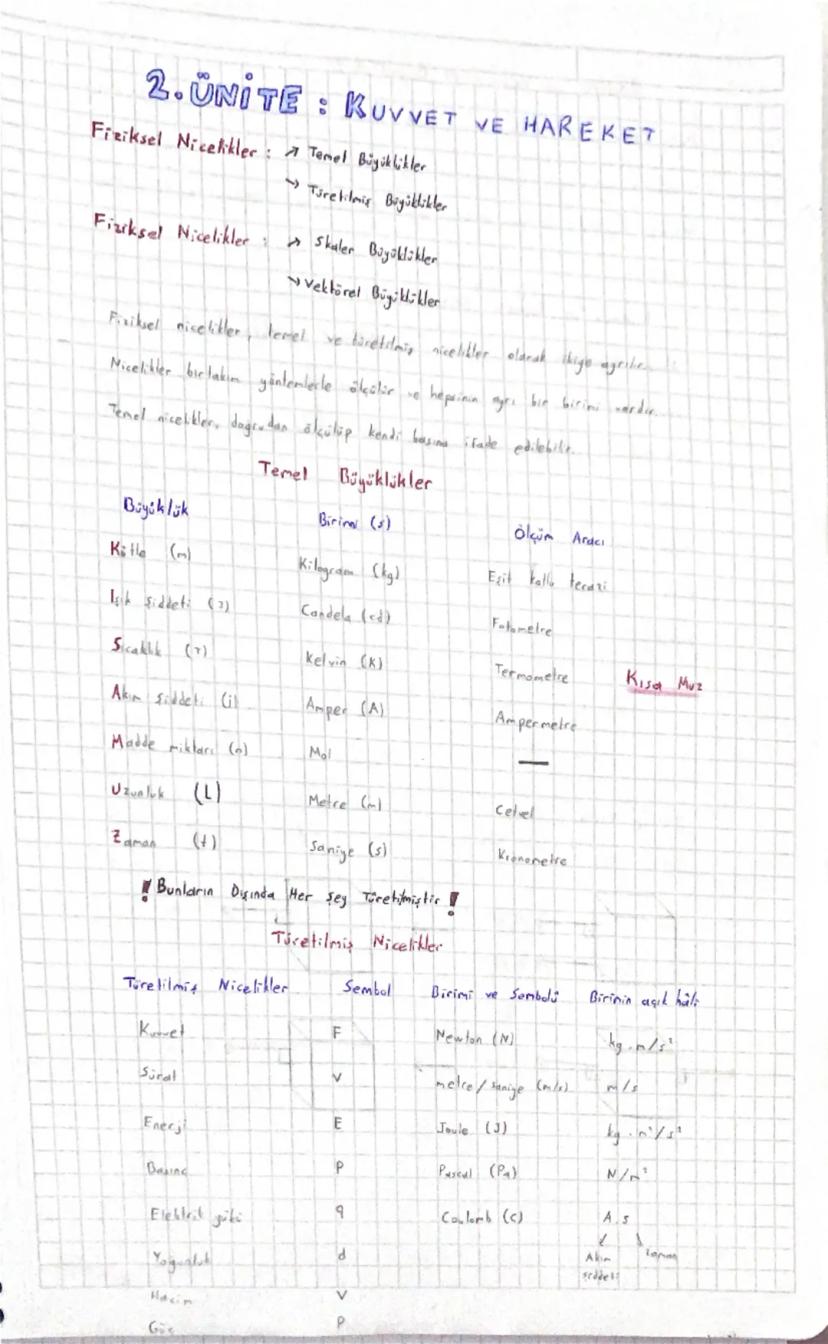 2. ÜNİTE : KUVVET VE HAREKET
Fiziksel Nicelikler : ↗ Temel Büyüklükler
↘ Türetilmiş Büyüklükler
Fiziksel Nicelikler : ↗ Skaler Büyüklükler
↘ Vektörel Büyüklükler
Fiziksel nicelikler, temel ve türetilmiş nicelikler olarak ikiye ayrılır.
Nicelikler birtakım yöntemlerle ölçülür ve hepsinin ayrı bir birimi vardır.
Temel nicelikler, doğrudan ölçülüp kendi başına ifade edilebilir.
Temel Büyüklükler
Büyüklük Birimi (s) Ölçüm Aracı
Kütle (m) Kilogram (kg) Eşit kollu terazi
Işık şiddeti (J) Candela (cd) Fotometre
Sıcaklık (T) Kelvin (K) Termometre Kısa Muz
Akım şiddeti (i) Amper (A) Ampermetre
Madde miktarı (n) Mol —
Uzunluk (L) Metre (m) Cetvel
Zaman (t) Saniye (s) Kronometre
! Bunların Dışında Her Şey Türetilmiştir !
Türetilmiş Nicelikler
Türetilmiş Nicelikler Sembol Birimi ve Sembolü Birimin açık hâli
Kuvvet F Newton (N) kg.m/s²
Sürat V metre/saniye (m/s) m/s
Enerji E Joule (J) kg.m²/s²
Basınç P Pascal (Pa) N/m²
Elektrik yükü q Coulomb (C) A.s
Akım şiddeti zaman
Yoğunluk d
Hacim V
Güç P